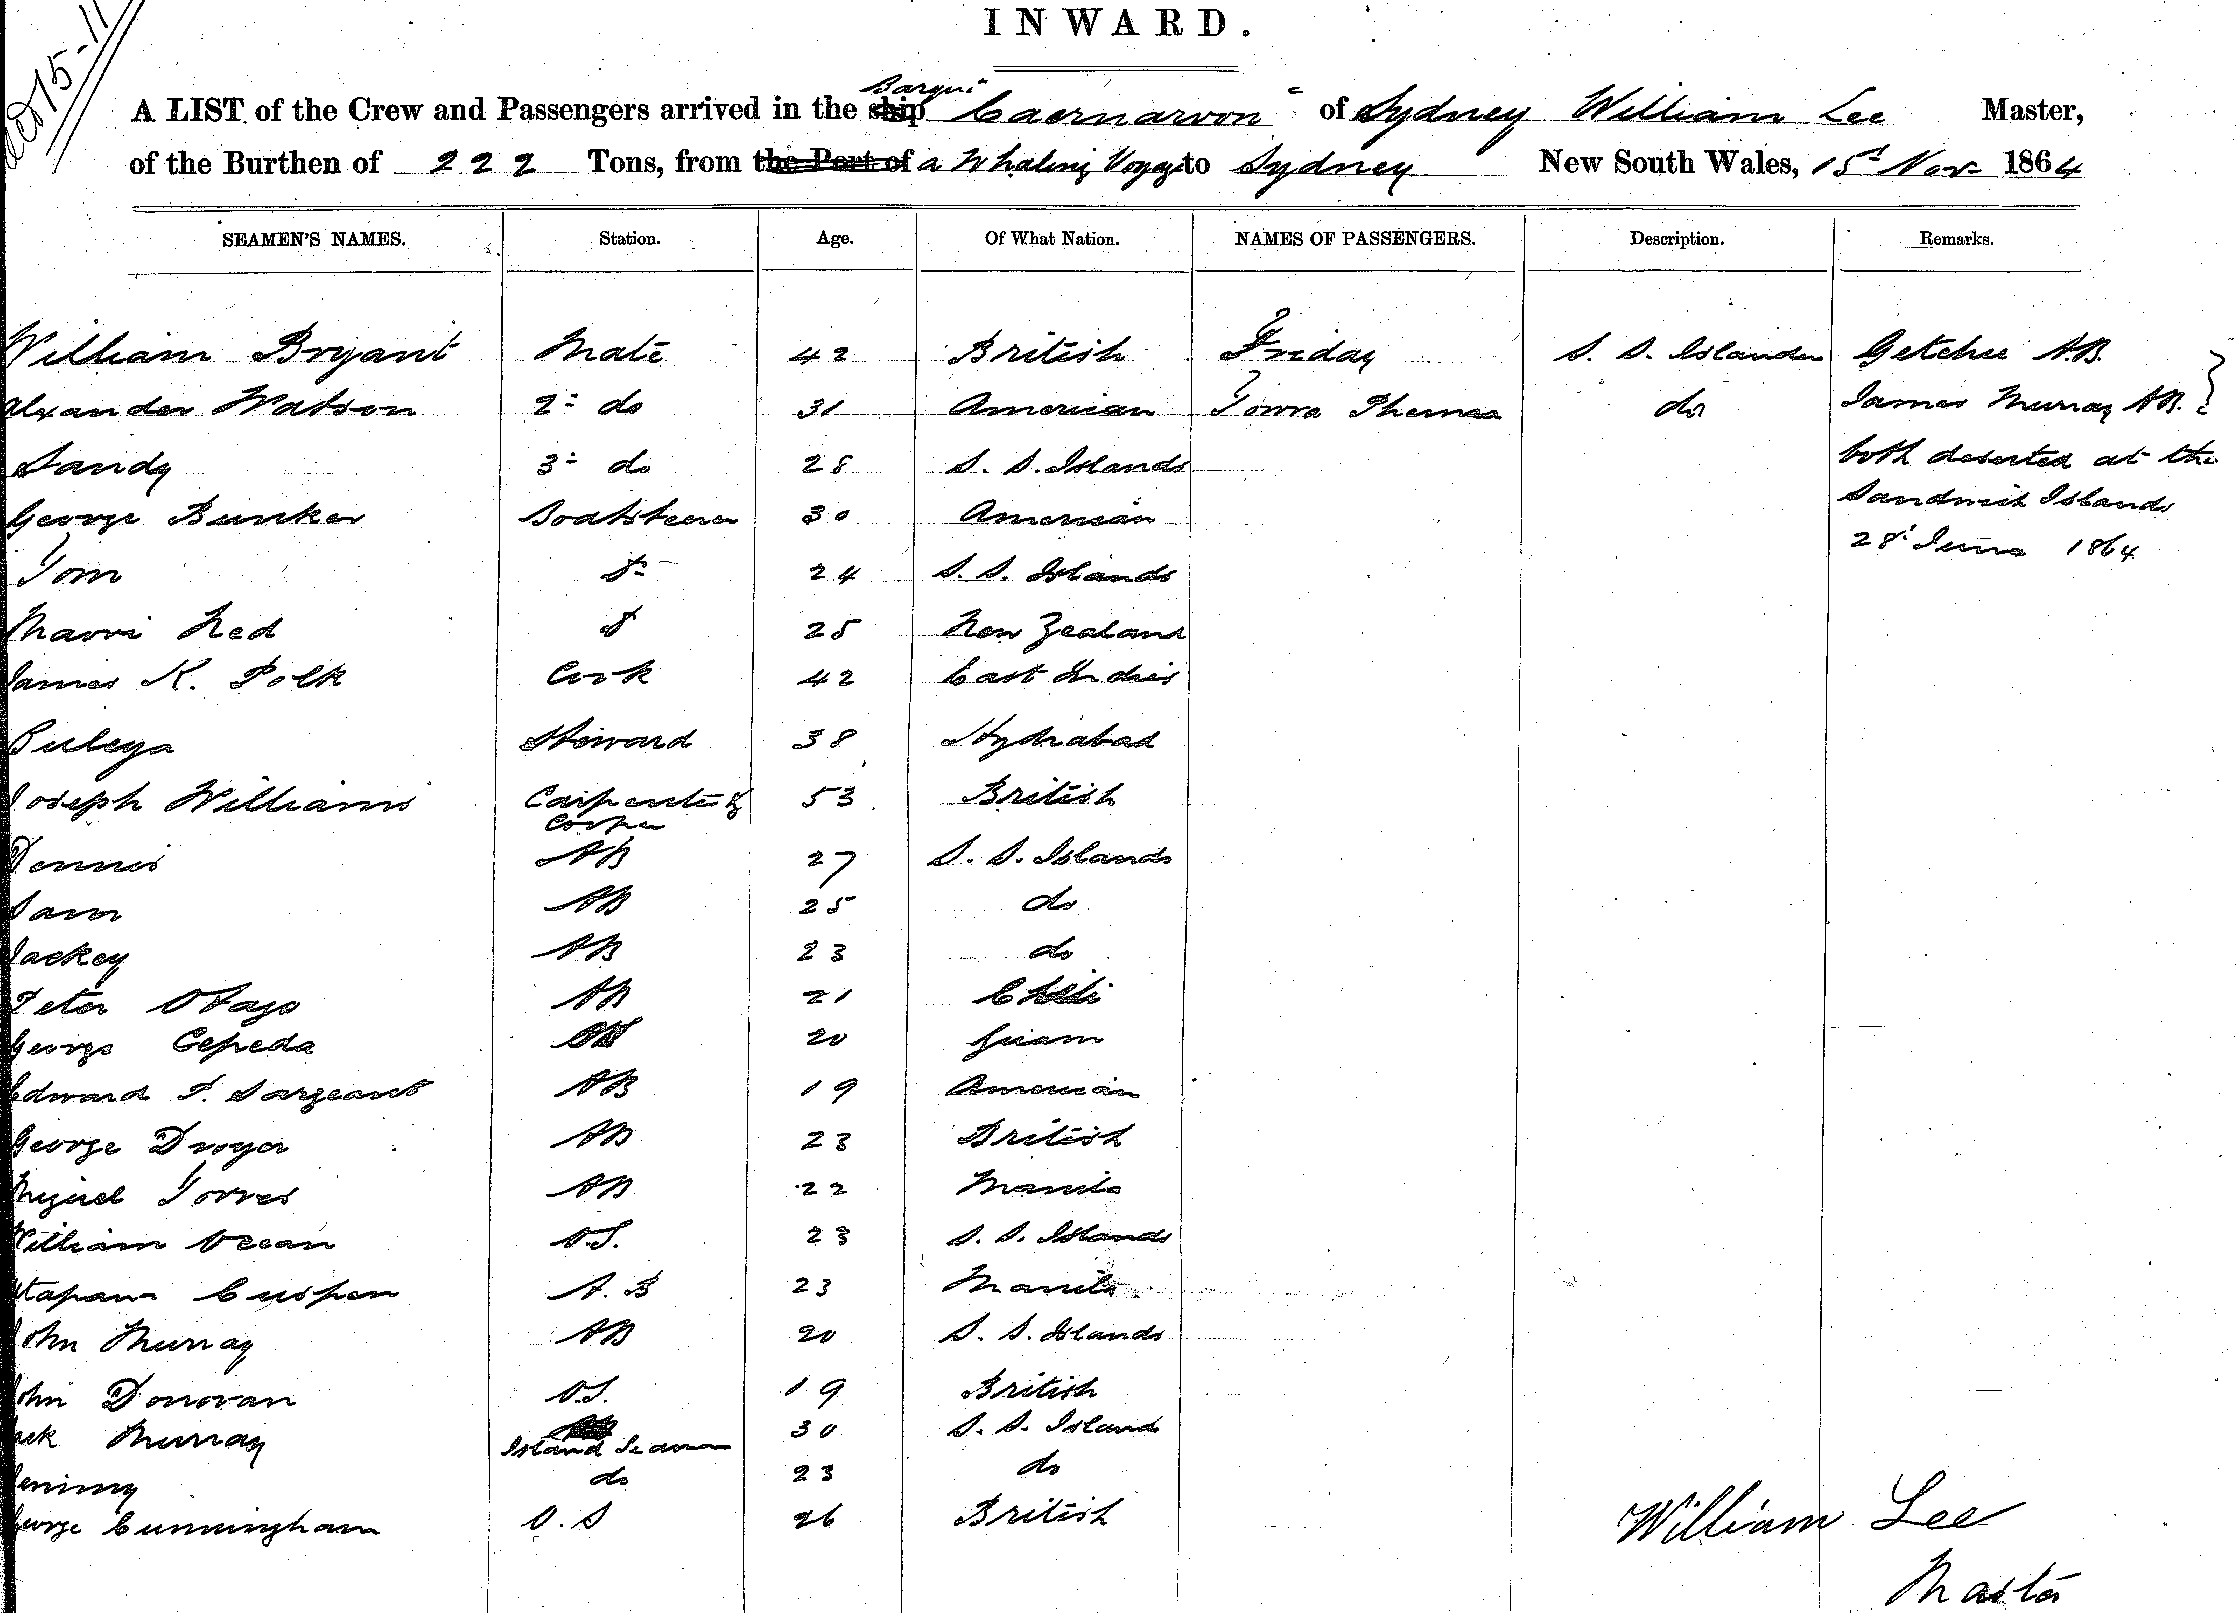 INWARD.
Barque
A LIST of the Crew and Passengers arrived in the ship Caernarvon of Sydney William Lee Master,
of the Burthen of 222 Tons, from the Port of a Whaling Voyage to Sydney New South Wales, 15th Nov. 1864
SEAMEN'S NAMES. Station. Age. Of What Nation. NAMES OF PASSENGERS. Description. Remarks.
William Bryant Mate 42 British Friday S. S. Islander Getchee AB.
Alexander Watson 2d do 31 American Towra Thomas do James Murray AB.
Sandy 3d do 28 S. S. Islands both deserted at the
George Bunker Boatsteerer 30 American Sandwich Islands
28th June 1864
Tom Do 24 S. S. Islands
Maori Ned Do 25 New Zealand
James K. Polk Cook 42 East Indies
Steward 38 Hydrabad
Joseph Williams Carpenter & 53 British
Cooper
Dennis AB 27 S. S. Islands
Sam AB 25 do
Jackey AB 23 do
Peter Otago AB 21 Chili
George Cepeda OS 20 Guam
Edward T. Sargeant AB 19 American
George Dwyer AB 23 British
Miguel Torres AB 22 Manila
William Ocean O.S. 23 S. S. Islands
A. B 23 Manila
John Murray AB 20 S. S. Islands
John Donovan O.S. 19 British
Jack Murray Island Seaman 30 S. S. Island
Jemmy do 23 do
George Cunningham O.S 26 British
William Lee
Master